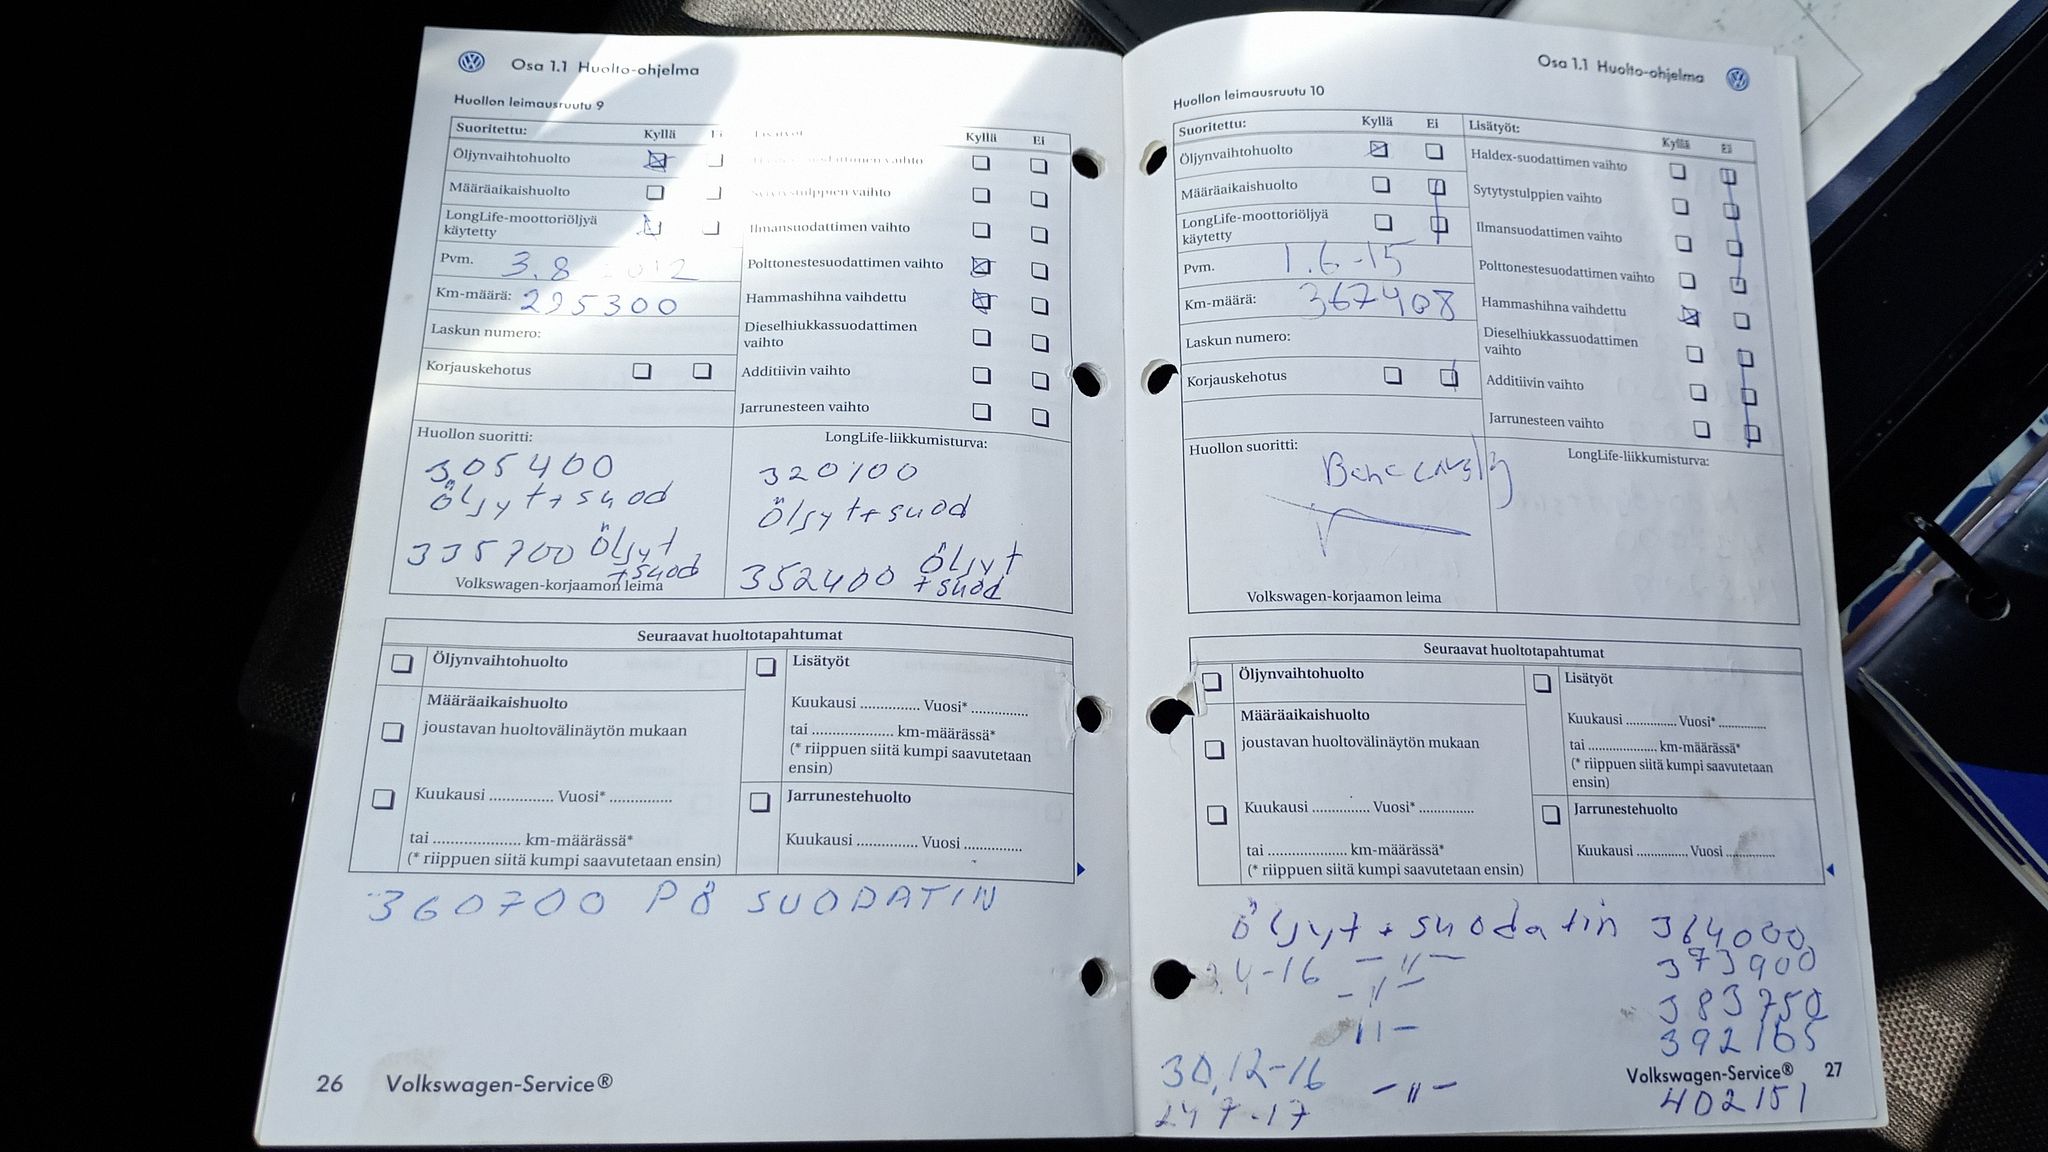 Osa 1.1 Huolto-ohjelma
Huollon leimausruutu 9
Suoritettu: Kyllä Ei Lisätyöt Kyllä Ei
Öljynvaihtohuolto
Määräaikaishuolto
Sytytystulppien vaihto
LongLife-moottoriöljyä käytetty
Ilmansuodattimen vaihto
Pvm. 3.8 2012
Polttonestesuodattimen vaihto
Km-määrä: 295300
Hammashihna vaihdettu
Laskun numero:
Dieselhiukkassuodattimen vaihto
Korjauskehotus
Additiivin vaihto
Jarrunesteen vaihto
Huollon suoritti:
LongLife-liikkumisturva:
305400
öljyt + suod
320100
öljyt + suod
335700 öljyt + suod
352400 öljyt + suod
Volkswagen-korjaamon leima
Seuraavat huoltotapahtumat
Öljynvaihtohuolto
Määräaikaishuolto
joustavan huoltovälinäytön mukaan
Kuukausi ............... Vuosi* ...............
tai ..................... km-määrässä*
(* riippuen siitä kumpi saavutetaan ensin)
Lisätyöt
Kuukausi .............. Vuosi* ..............
tai ..................... km-määrässä*
(* riippuen siitä kumpi saavutetaan
ensin)
Jarrunestehuolto
Kuukausi .............. Vuosi ..............
360700 PÖ SUODATIN
26 Volkswagen-Service®
Osa 1.1 Huolto-ohjelma
Huollon leimausruutu 10
Suoritettu: Kyllä Ei Lisätyöt: Kyllä Ei
Öljynvaihtohuolto
Haldex-suodattimen vaihto
Määräaikaishuolto
Sytytystulppien vaihto
LongLife-moottoriöljyä käytetty
Ilmansuodattimen vaihto
Pvm. 1.6-15
Polttonestesuodattimen vaihto
Km-määrä: 367408
Hammashihna vaihdettu
Laskun numero:
Dieselhiukkassuodattimen vaihto
Korjauskehotus
Additiivin vaihto
Jarrunesteen vaihto
Huollon suoritti:
LongLife-liikkumisturva:
Volkswagen-korjaamon leima
Seuraavat huoltotapahtumat
Öljynvaihtohuolto
Määräaikaishuolto
joustavan huoltovälinäytön mukaan
Kuukausi ............... Vuosi* ..............
tai ..................... km-määrässä*
(* riippuen siitä kumpi saavutetaan ensin)
Lisätyöt
Kuukausi .............. Vuosi* ..............
tai .................... km-määrässä*
(* riippuen siitä kumpi saavutetaan
ensin)
Jarrunestehuolto
Kuukausi .............. Vuosi ..............
öljyt + suodatin 364000
4-16 -"- 373900
-"- 383750
"- 392165
30,12-16
Volkswagen-Service® 27
24 7-17 -"- 402151